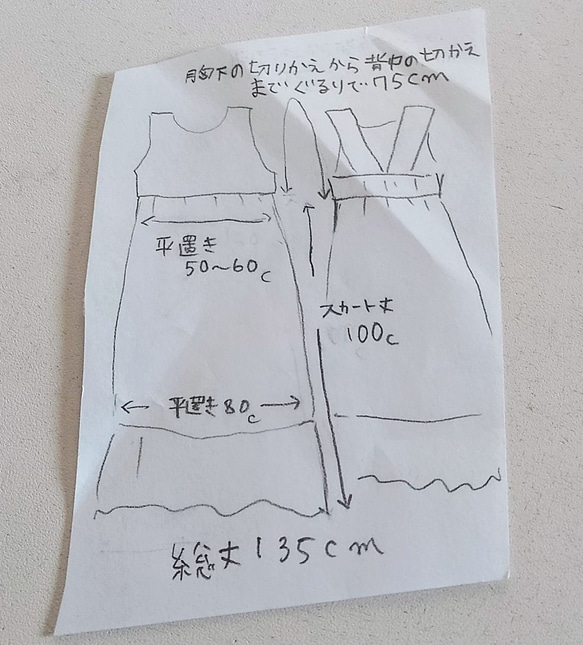 胸下の切りかえから背中の切かえ
までぐるりで75cm
平置き
50〜60c
スカート丈
100c
平置き80c
総丈135cm